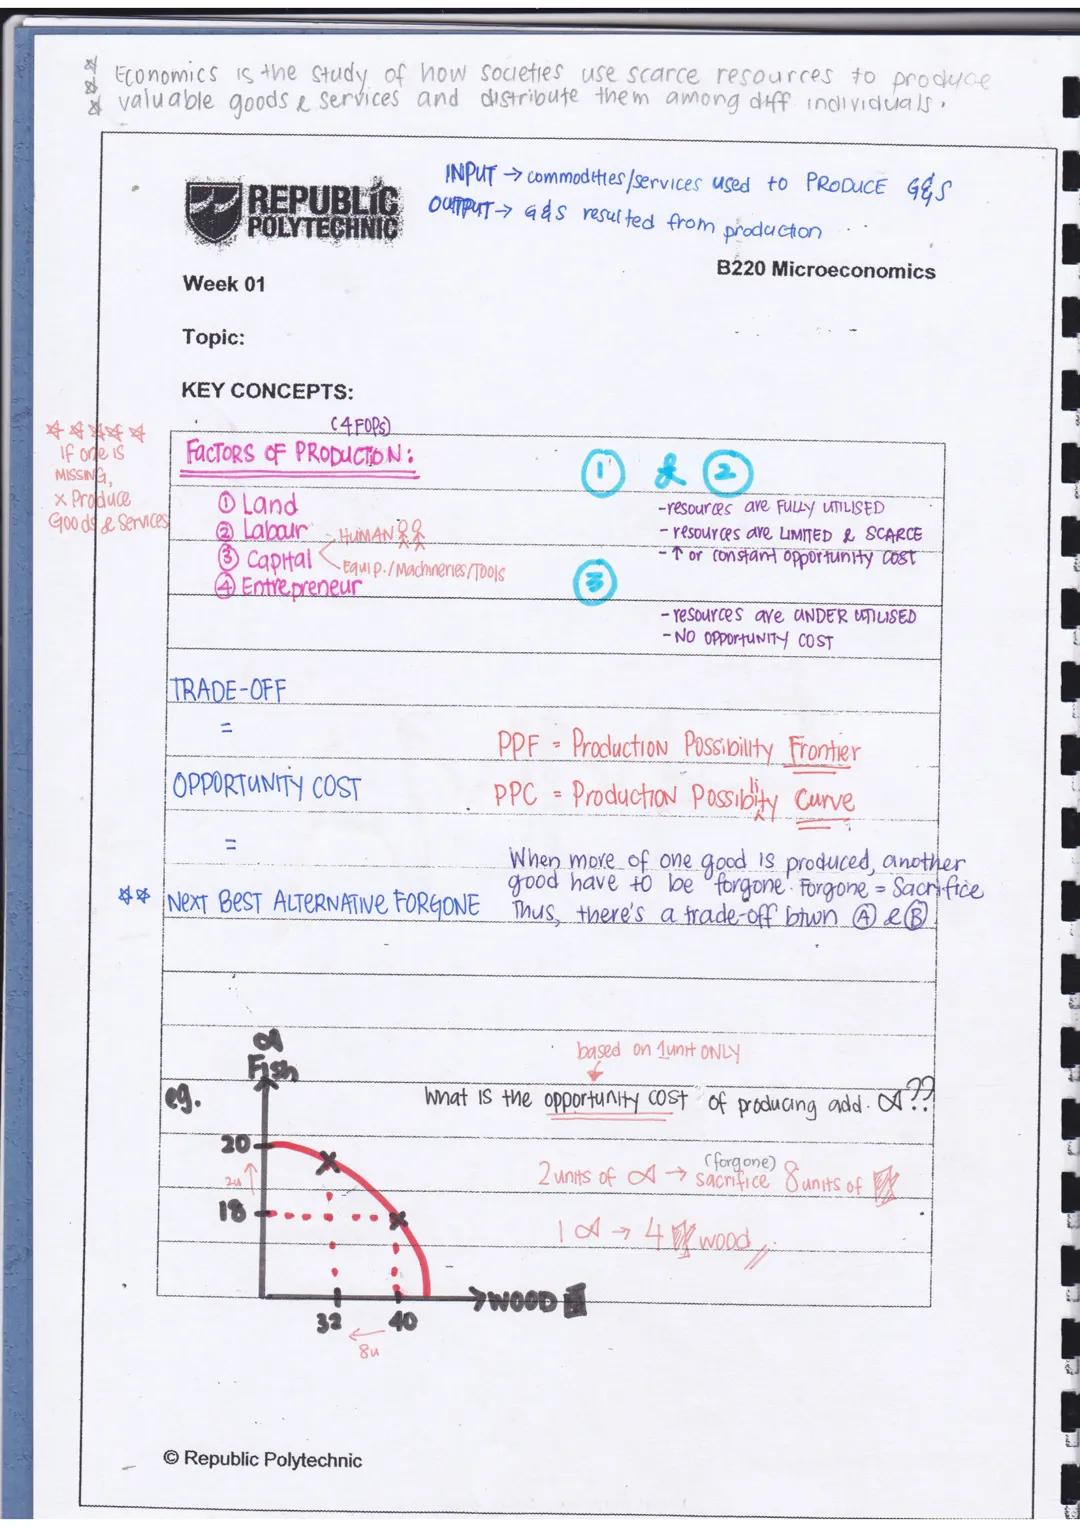 Economics is the study of how societies use scarce resources to produce
valuable goods & services and distribute them among diff individuals.
INPUT → commodities/services used to PRODUCE G&S
OUTPUT → G&S resulted from production
REPUBLIC
POLYTECHNIC
B220 Microeconomics
Week 01
Topic:
KEY CONCEPTS:
(4 FOPs)
FACTORS OF PRODUCTION:
If one is
MISSING,
x Produce
Goods & Services
① Land
② Labour
③ Capital
④ Entrepreneur
HUMAN
Equip./Machineries/Tools
① & ②
-resources are FULLY UTILISED
- resources are LIMITED & SCARCE
- ↑ or constant opportunity cost
③
-resources are UNDER UTILISED
- NO OPPORTUNITY COST
TRADE-OFF
=
OPPORTUNITY COST
=
NEXT BEST ALTERNATIVE FORGONE
PPF = Production Possibility Frontier
PPC = Production Possibility Curve
When more of one good is produced, another
good have to be forgone. Forgone = Sacrifice
Thus, there's a trade-off btwn Ⓐ & Ⓑ
based on 1unit ONLY
What is the opportunity cost of producing add. ??
(forgone)
2 units of → sacrifice 8 units of
1 → 4 wood
eg.
Fish
20
2u ↑
18
32
40
WOOD
← 8u
© Republic Polytechnic